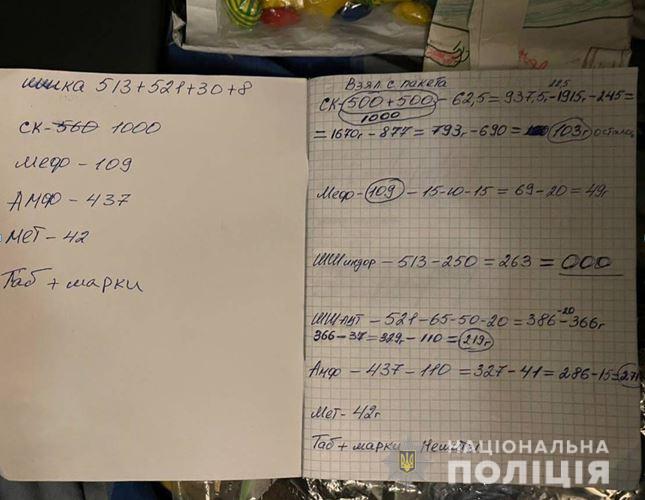 шишка 513+521+30+8
СК-560 1000
Меф - 109
АМФ - 437
МЕТ - 42
Таб + марки
Взял с пакета
СК-500+500 - 62,5 = 937,5г-1915г-245=
1000
= 1670г - 877 = 793г - 690 = 103г осталось
Меф - 109 - 15-10-15 = 69-20 = 49г
ШШиндор - 513-250 = 263 = 000
ШШАЦТ - 521-65-50-20 = 386-20-366г
366-37=329г-110=219г
Амф - 437-110=327-41=286-15=271
Мет - 42г
Таб + марки
НАЦІОНАЛЬНА
ПОЛІЦІЯ